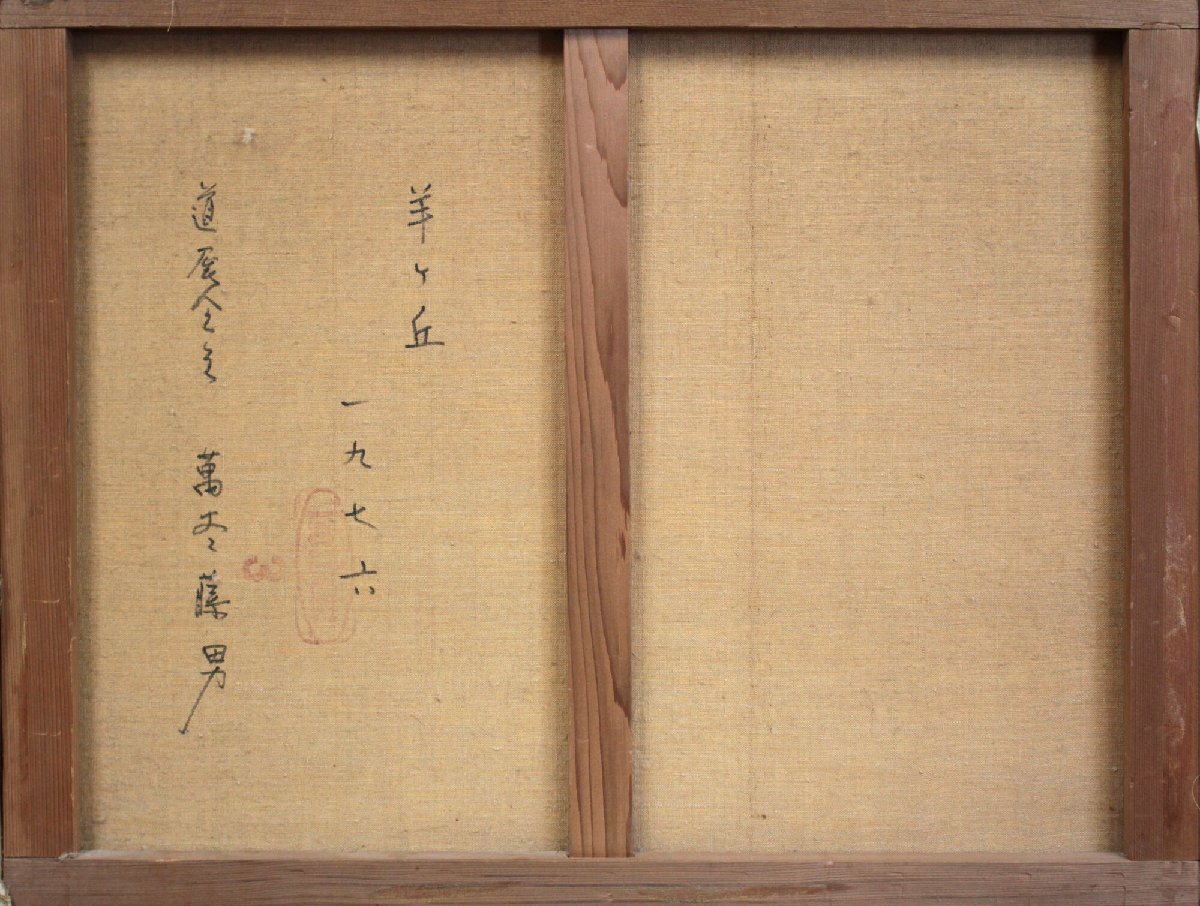 羊ヶ丘
一九七六
道展会員 萬 藤男